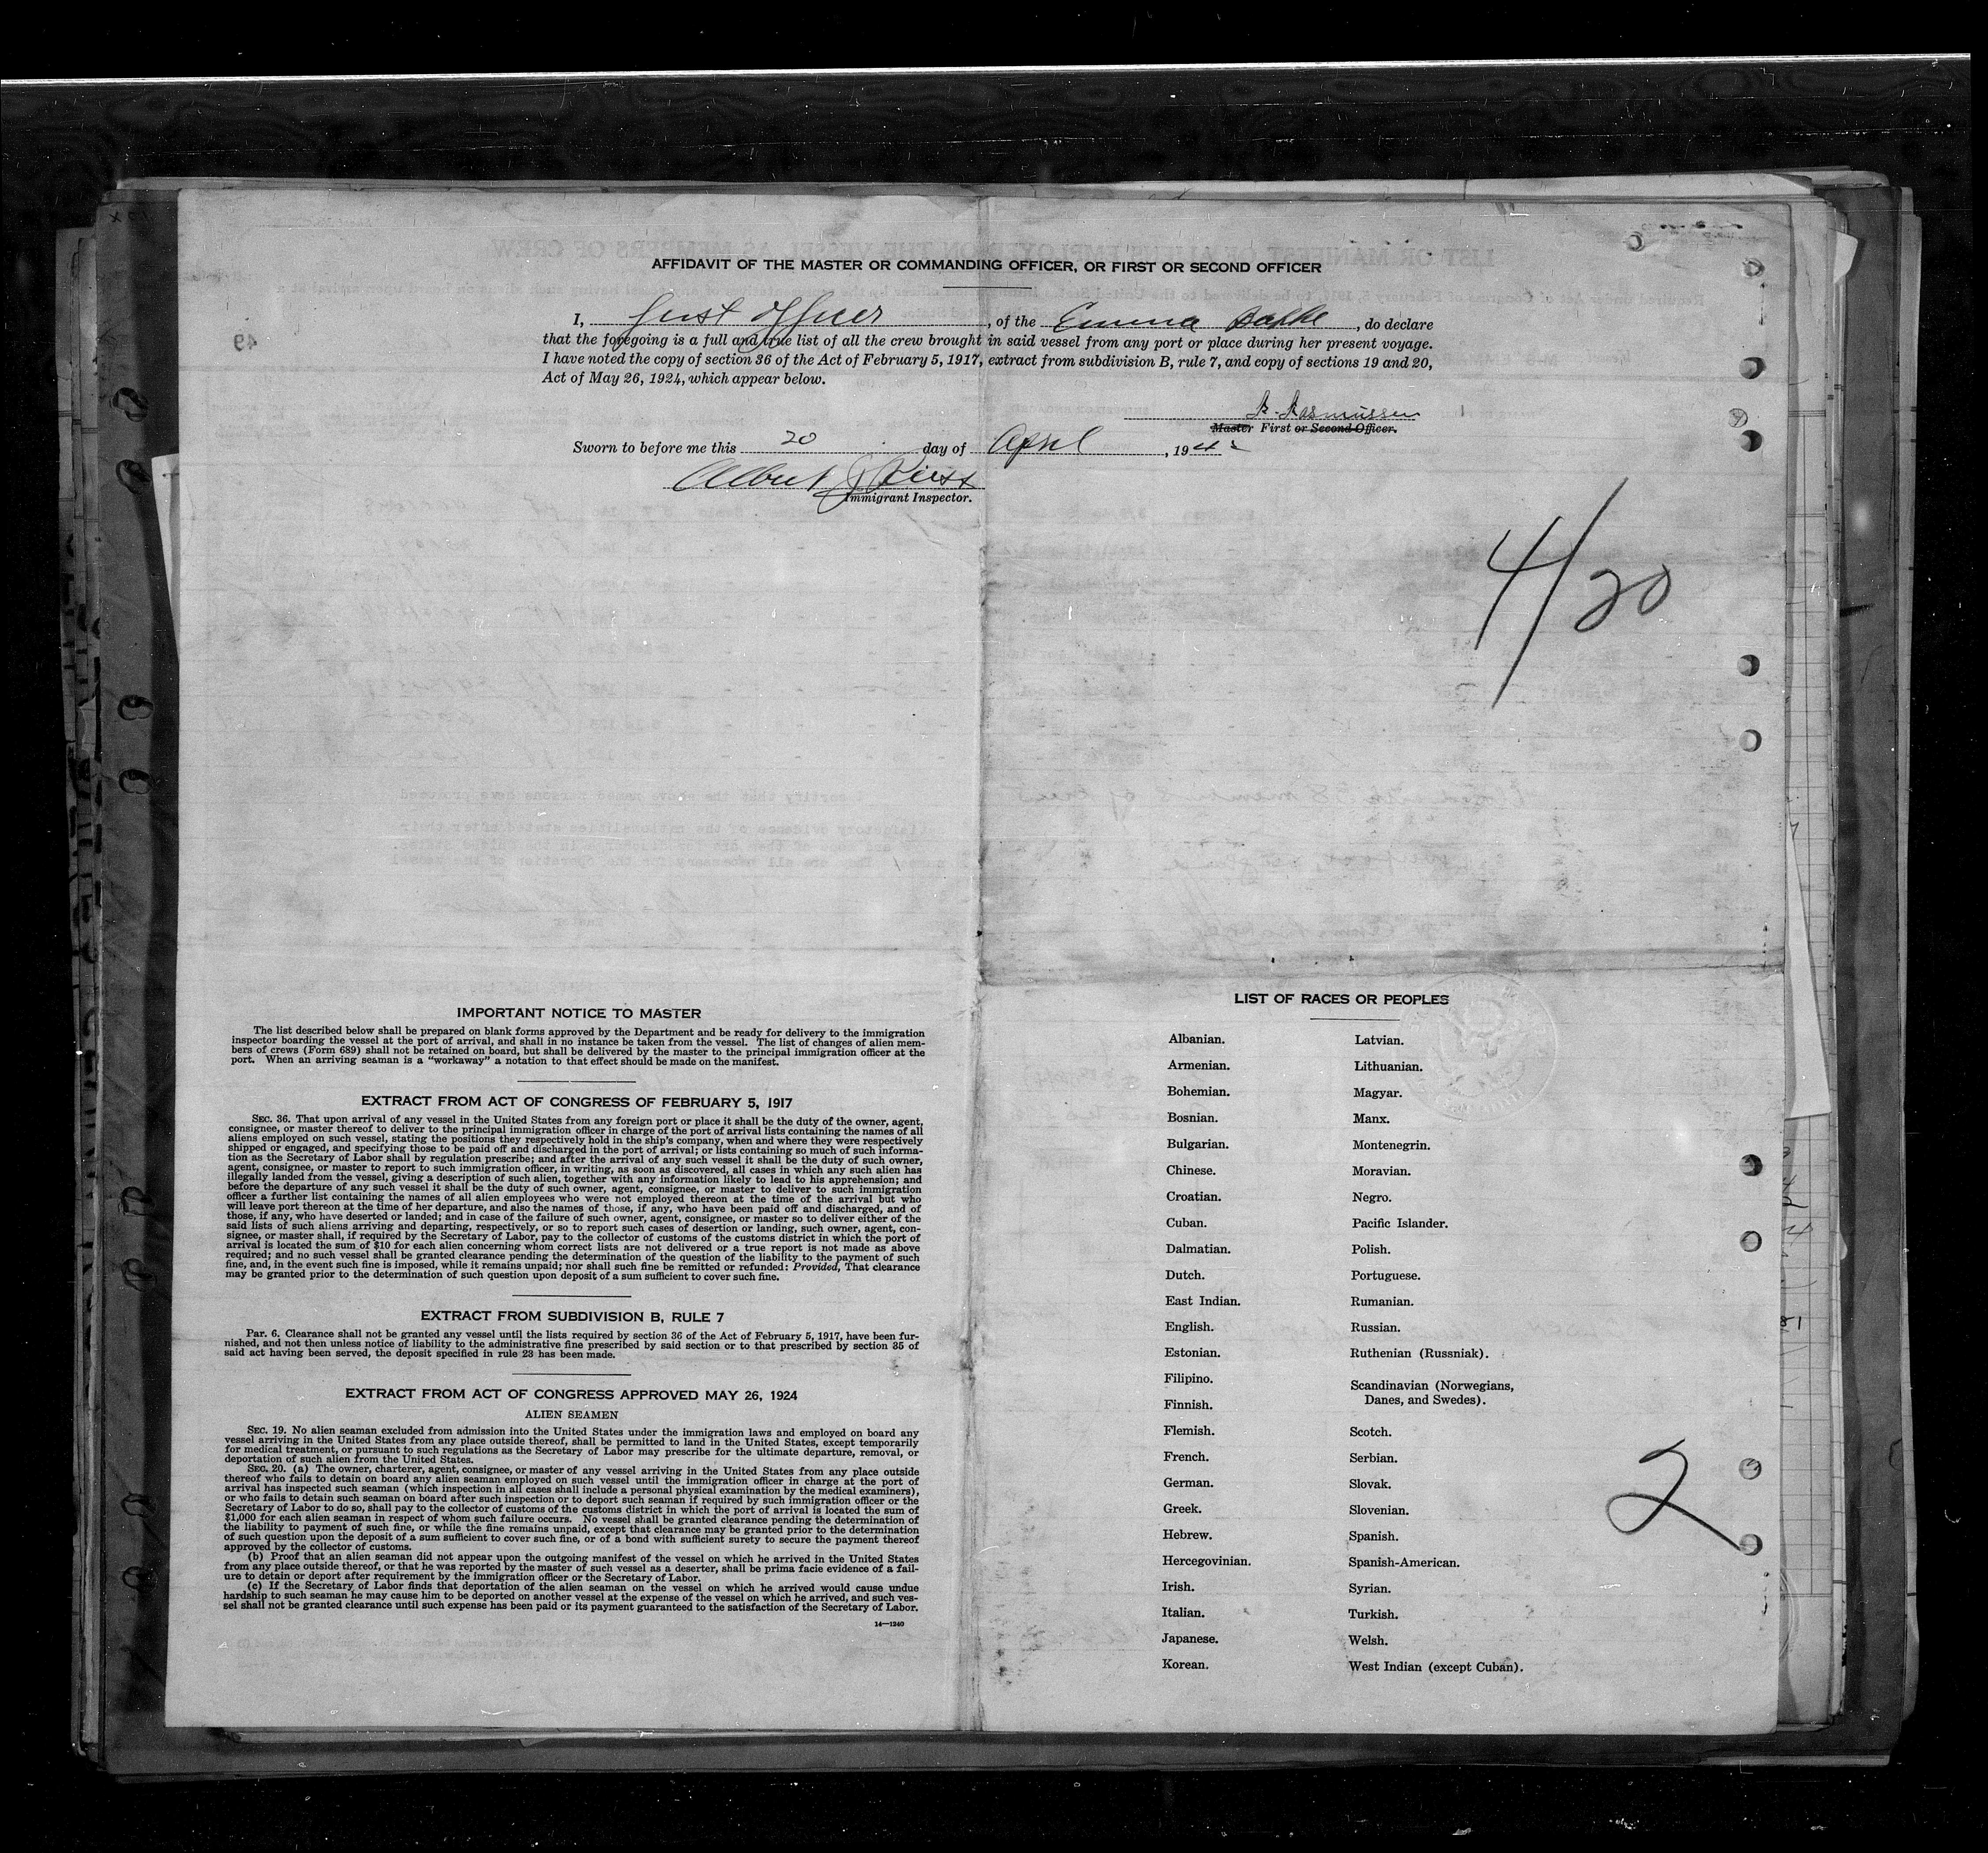 AFFIDAVIT OF THE MASTER OR COMMANDING OFFICER, OR FIRST OR SECOND OFFICER
I, First Officer, of the Emma Bakke, do declare
that the foregoing is a full and true list of all the crew brought in said vessel from any port or place during her present voyage.
I have noted the copy of section 36 of the Act of February 5, 1917, extract from subdivision B, rule 7, and copy of sections 19 and 20,
Act of May 26, 1924, which appear below.
Rasmussen
Master First or Second Officer.
Sworn to before me this 20 day of April, 194
Albert
Immigrant Inspector.
4/20
IMPORTANT NOTICE TO MASTER
The list described below shall be prepared on blank forms approved by the Department and be ready for delivery to the immigration
inspector boarding the vessel at the port of arrival, and shall in no instance be taken from the vessel. The list of changes of alien mem-
bers of crews (Form 689) shall not be retained on board, but shall be delivered by the master to the principal immigration officer at the
port. When an arriving seaman is a "workaway" a notation to that effect should be made on the manifest.
EXTRACT FROM ACT OF CONGRESS OF FEBRUARY 5, 1917
SEC. 36. That upon arrival of any vessel in the United States from any foreign port or place it shall be the duty of the owner, agent,
consignee, or master thereof to deliver to the principal immigration officer in charge of the port of arrival lists containing the names of all
aliens employed on such vessel, stating the positions they respectively hold in the ship's company, when and where they were respectively
shipped or engaged, and specifying those to be paid off and discharged in the port of arrival; or lists containing so much of such informa-
tion as the Secretary of Labor shall by regulation prescribe; and after the arrival of any such vessel it shall be the duty of such owner,
agent, consignee, or master to report to such immigration officer, in writing, as soon as discovered, all cases in which any such alien has
illegally landed from the vessel, giving a description of such alien, together with any information likely to lead to his apprehension; and
before the departure of any such vessel it shall be the duty of such owner, agent, consignee, or master to deliver to such immigration
officer a further list containing the names of all alien employees who were not employed thereon at the time of the arrival but who
will leave port thereon at the time of her departure, and also the names of those, if any, who have been paid off and discharged, and of
those, if any, who have deserted or landed; and in case of the failure of such owner, agent, consignee, or master so to deliver either of the
said lists of such aliens arriving and departing, respectively, or so to report such cases of desertion or landing, such owner, agent, con-
signee, or master shall, if required by the Secretary of Labor, pay to the collector of customs of the customs district in which the port of
arrival is located the sum of $10 for each alien concerning whom correct lists are not delivered or a true report is not made as above
required; and no such vessel shall be granted clearance pending the determination of the question of the liability to the payment of such
fine, and, in the event such fine is imposed, while it remains unpaid; nor shall such fine be remitted or refunded: Provided, That clearance
may be granted prior to the determination of such question upon deposit of a sum sufficient to cover such fine.
EXTRACT FROM SUBDIVISION B, RULE 7
Par. 6. Clearance shall not be granted any vessel until the lists required by section 36 of the Act of February 5, 1917, have been fur-
nished, and not then unless notice of liability to the administrative fine prescribed by said section or to that prescribed by section 35 of
said act having been served, the deposit specified in rule 23 has been made.
EXTRACT FROM ACT OF CONGRESS APPROVED MAY 26, 1924
ALIEN SEAMEN
SEC. 19. No alien seaman excluded from admission into the United States under the immigration laws and employed on board any
vessel arriving in the United States from any place outside thereof, shall be permitted to land in the United States, except temporarily
for medical treatment, or pursuant to such regulations as the Secretary of Labor may prescribe for the ultimate departure, removal, or
deportation of such alien from the United States.
SEC. 20. (a) The owner, charterer, agent, consignee, or master of any vessel arriving in the United States from any place outside
thereof who fails to detain on board any alien seaman employed on such vessel until the immigration officer in charge at the port of
arrival has inspected such seaman (which inspection in all cases shall include a personal physical examination by the medical examiners),
or who fails to detain such seaman on board after such inspection or to deport such seaman if required by such immigration officer or the
Secretary of Labor to do so, shall pay to the collector of customs of the customs district in which the port of arrival is located the sum of
$1,000 for each alien seaman in respect of whom such failure occurs. No vessel shall be granted clearance pending the determination of
the liability to payment of such fine, or while the fine remains unpaid, except that clearance may be granted prior to the determination
of such question upon the deposit of a sum sufficient to cover such fine, or of a bond with sufficient surety to secure the payment thereof
approved by the collector of customs.
(b) Proof that an alien seaman did not appear upon the outgoing manifest of the vessel on which he arrived in the United States
from any place outside thereof, or that he was reported by the master of such vessel as a deserter, shall be prima facie evidence of a fail-
ure to detain or deport after requirement by the immigration officer or the Secretary of Labor.
(c) If the Secretary of Labor finds that deportation of the alien seaman on the vessel on which he arrived would cause undue
hardship to such seaman he may cause him to be deported on another vessel at the expense of the vessel on which he arrived, and such ves-
sel shall not be granted clearance until such expense has been paid or its payment guaranteed to the satisfaction of the Secretary of Labor.
14—1240
LIST OF RACES OR PEOPLES
Albanian.
Armenian.
Bohemian.
Bosnian.
Bulgarian.
Chinese.
Croatian.
Cuban.
Dalmatian.
Dutch.
East Indian.
English.
Estonian.
Filipino.
Finnish.
Flemish.
French.
German.
Greek.
Hebrew.
Hercegovinian.
Irish.
Italian.
Japanese.
Korean.
Latvian.
Lithuanian.
Magyar.
Manx.
Montenegrin.
Moravian.
Negro.
Pacific Islander.
Polish.
Portuguese.
Rumanian.
Russian.
Ruthenian (Russniak).
Scandinavian (Norwegians,
Danes, and Swedes).
Scotch.
Serbian.
Slovak.
Slovenian.
Spanish.
Spanish-American.
Syrian.
Turkish.
Welsh.
West Indian (except Cuban).
2